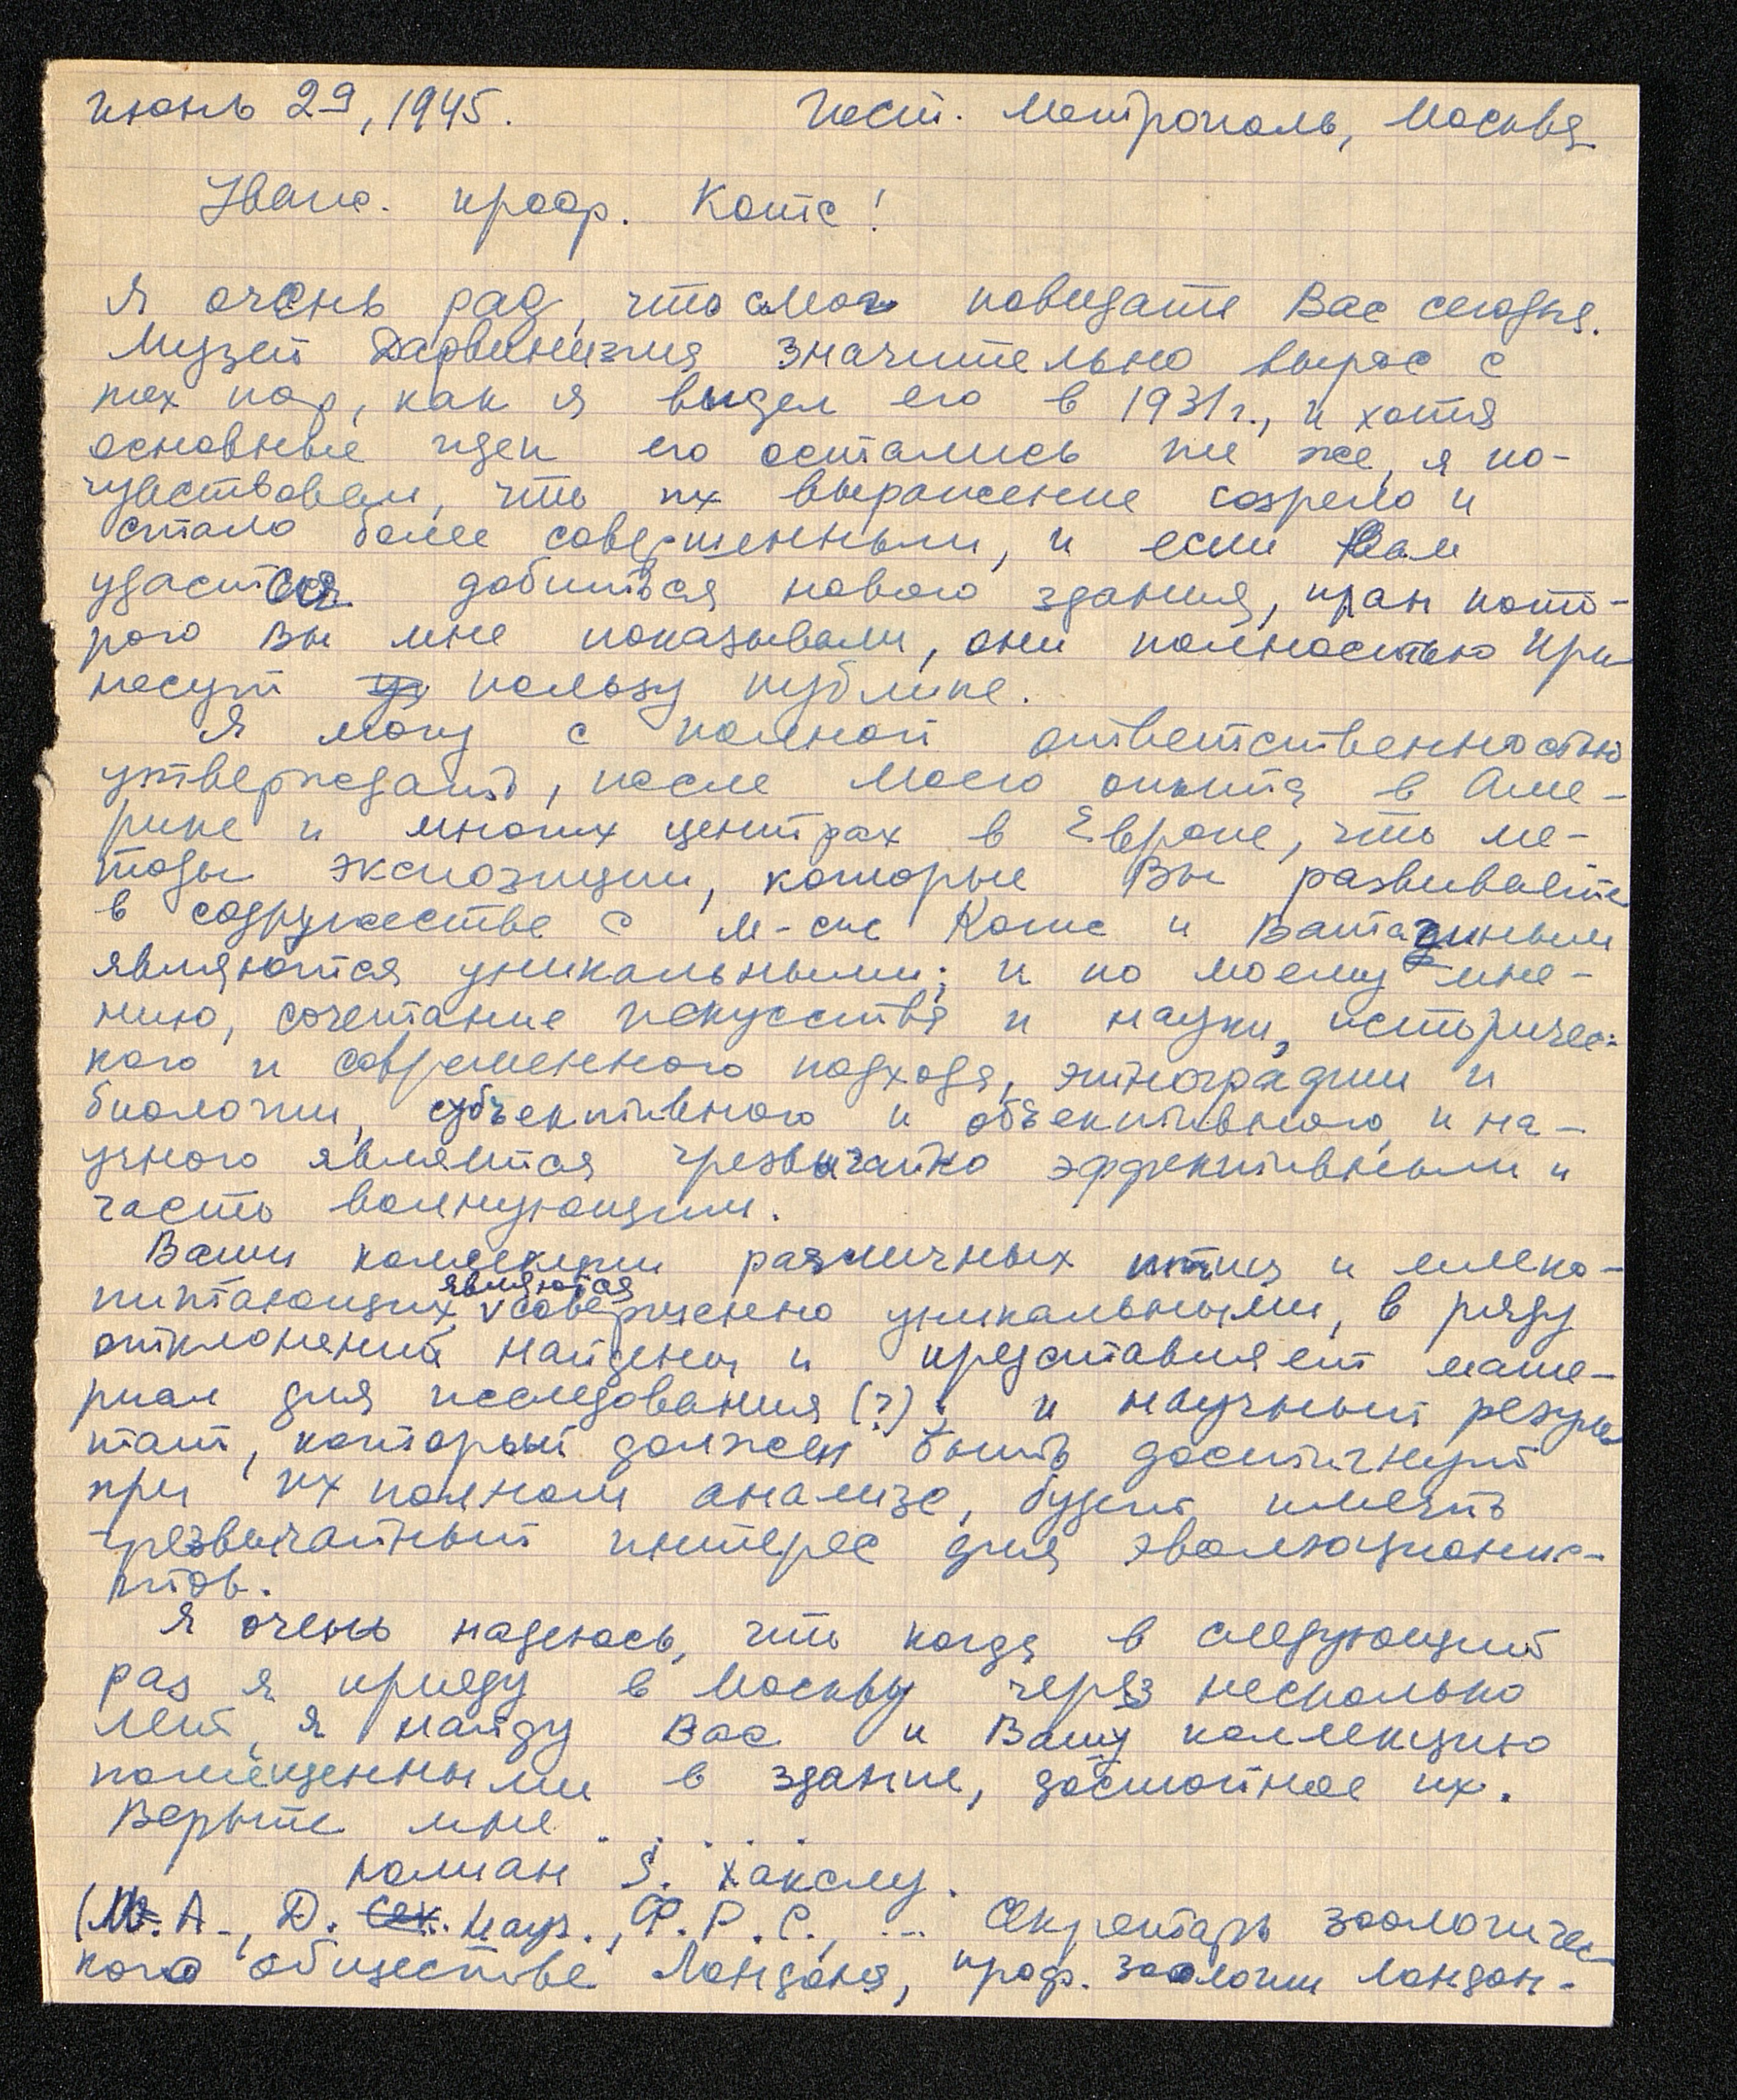 июнь 29, 1945. Гост. Метрополь, Москва
Уваж. проф. Котс!
Я очень рад, что смог повидать Вас сегодня.
Музей Дарвинизма значительно вырос с
тех пор, как я видел его в 1931 г., и хотя
основные идеи его остались те же, я по-
чувствовал, что их выражение созрело и
стало более совершенным, и если Вам
удастся добиться нового здания, план кото-
рого Вы мне показывали, они полностью при
несут пользу публике.
Я могу с полной ответственностью
утверждать, после моего опыта в Аме-
рике и многих центрах в Европе, что ме-
тоды экспозиции, которые Вы развиваете
в содружестве с м-сис Котс и Ватагиным
являются уникальными; и по моему мне-
нию, сочетание искусства и науки, историчес-
кого и современного подхода, этнографии и
биологии, субъективного и объективного, и на-
учного является чрезвычайно эффективным и
часто волнующим.
Ваши коллекции различных птиц и млеко-
питающих являются совершенно уникальными, в ряду
отклонений найдены и представляет мате-
риал для исследования (?); и научный резуль
тат, который должен быть достигнут
при их полном анализе, будет иметь
чрезвычайный интерес для эволюционис-
тов.
Я очень надеюсь, что когда в следующий
раз я приеду в Москву через несколько
лет, я найду Вас и Вашу коллекцию
помещенными в здание, достойное их.
Верьте мне . . . . .
Юлиан S. Хакслу.
(М. А., D. Сек. Наук., Ф. Р. С., ... Секретарь зоологичес-
кого общества Лондона, проф. зоологии Лондон-